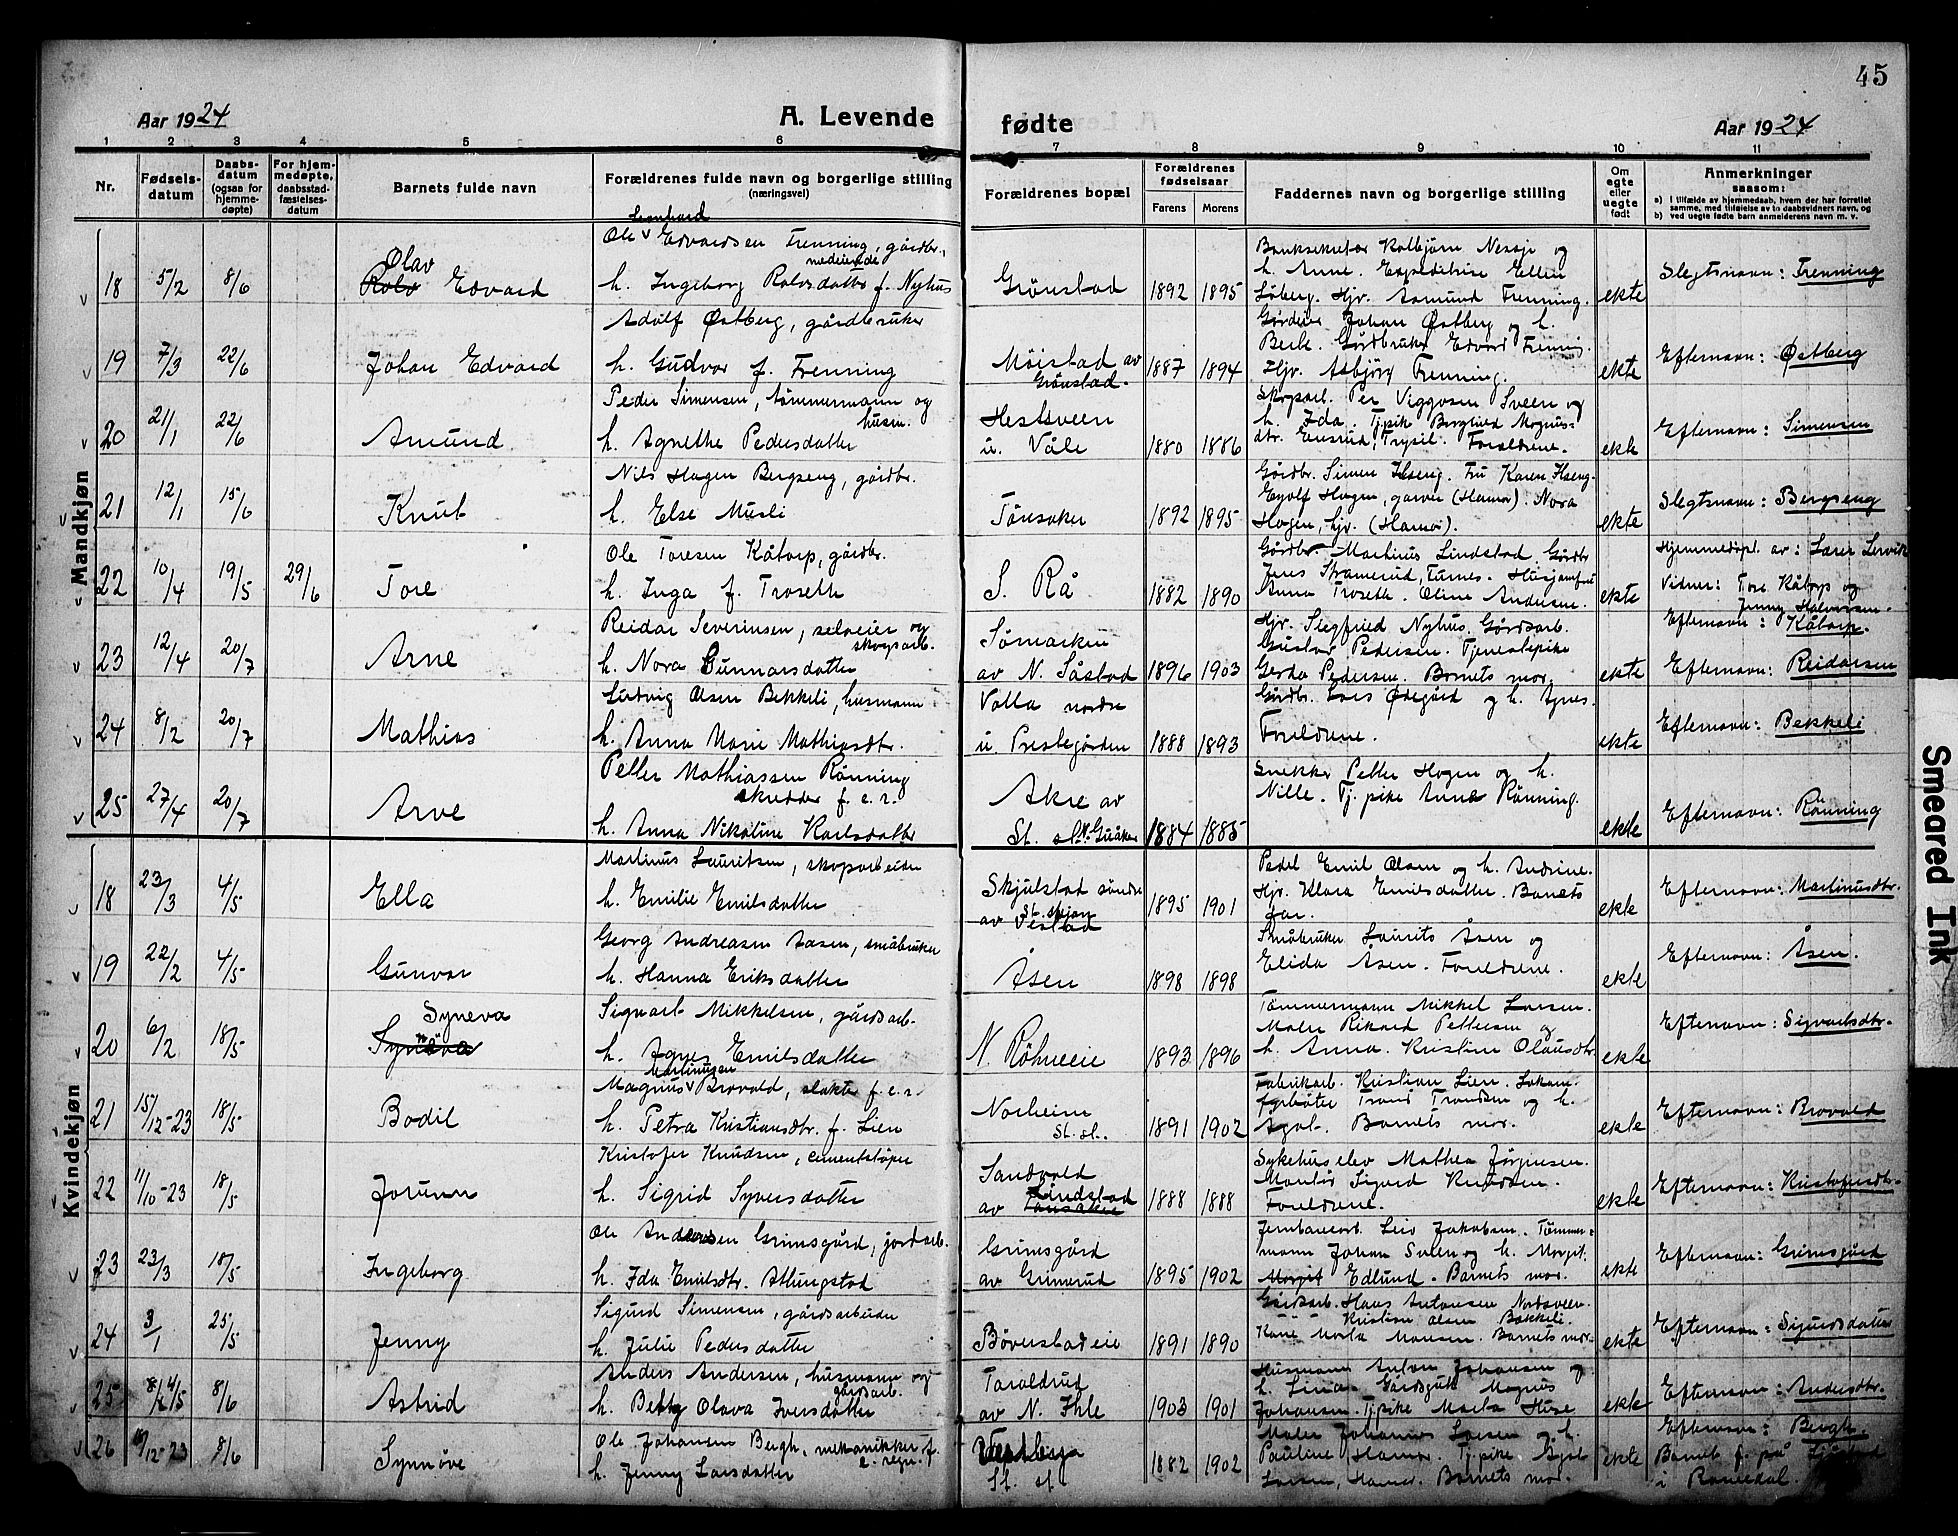 45
Aar 1924
A. Levende
fødte
Aar 1924
1 2 3 4 5 6 7 8 9 10 11
Nr.
Fødsels-
datum
Daabs-
datum
(ogsaa for
hjemme-
døpte)
For hjem-
medøpte,
daabsstad-
fæstelses-
datum
Barnets fulde navn
Forældrenes fulde navn og borgerlige stilling
(næringsvei)
Forældrenes bopæl
Forældrenes
fødselsaar
Farens Morens
Faddernes navn og borgerlige stilling
Om
egte
eller
uegte
født
Anmerkninger
saasom:
a) I tilfælde av hjemmedaab, hvem der har forrettet
samme, med tilføielse av to daabsvidners navn, og
b) ved uegte fødte barn anmelderens navn m. v.
Mandkjøn
18 5/2 8/6 Olav Rolv Edvard
Ole Leonhard Edvardsen Frenning, gårdbr., medeiende
h. Ingeborg Rolvsdatter f. Nyhus
Grønstad 1892 1895
Banksekretær Kolbjørn Nessje og
h. Anne. Expeditrise Ellen
Løberg. Hjv. Asmund Frenning.
ekte Slegtsnavn: Frenning
19 7/3 22/6 Johan Edvard
Adolf Østberg, gårdbruker
h. Gudvor f. Frenning
Møistad av
Grønstad. 1887 1894
Gårdeier Johan Østberg og h.
Berte. Gårdbruker Edvard Frenning.
Hjv. Asbjørg Frenning.
ekte Efternavn: Østberg
20 21/1 22/6 Amund
Peder Simensen, tømmermann og
husm.
h. Agnethe Pedersdatter
Hestsveen
u. Våle 1880 1886
Skogsarb. Per Viggosen Sveen og
h. Ida. Tj.pike Borghild Magnus-
dtr. Ensrud, Trysil. Foreldrene.
ekte Efternavn: Simensen
21 12/1 15/6 Knut
Nils Hagen Bergseng, gårdbr.
h. Else Musli
Tønsaker 1892 1895
Gårdbr. Simen Hseng. Fru Karen Hseng.
Eyolf Hagen, garver (Hamar). Nora
Hagen, hjv. (Hamar).
ekte Slegtsnavn: Bergseng
22 10/4 19/5 29/6 Tore
Ole Toresen Kåtorp, gårdbr.
h. Inga f. Trosette
S. Rå 1882 1890
Gårdbr. Martinus Lindstad. Gårdbr.
Jens Stramerud, Furnes. Husjomfru
Anna Trosette. Oline Andersen.
ekte Hjemmedøpt av: Lærer Lervik
Vidner: Tore Kåtorp og
Jenny Halvorsen.
Efternavn: Kåtorp.
23 12/4 20/7 Arne
Reidar Severinsen, selveier og
skogsarb.
h. Nora Gunnarsdatter
Sømarken
av N. Såstad 1896 1903
Hjv. Siegfried Nyhus. Gårdsarb.
Gustav Pedersen. Tjenestepike
Gerda Pedersen. Barnets mor.
ekte Efternavn: Reidarsen
24 8/2 20/7 Mathias
Ludvig Olsen Bekkeli, husmann
h. Anna Marie Mathiasdtr.
Valla nordre
u. Prestegården 1888 1893
Gårdbr. Lars Ødegård og h. Agnes.
Foreldrene.
ekte Efternavn: Bekkeli
25 27/4 20/7 Arve
Petter Mathiassen Rønning
skredder f. e. r.
h. Anna Nikoline Karlsdatter
Akre av
St. sl. N. Gusker 1884 1885
Snekker Petter Hagen og h.
Nille. Tj. pike Anne Rønning.
ekte Efternavn: Rønning
Kvindekjøn
18 23/3 4/5 Ella
Martinus Lauritsen, skogsarbeider
h. Emilie Emilsdatter
Skjulstad søndre
av Vestad 1895 1901
Pedel Emil Olsen og h. Andrine.
Hjv. Klara Emilsdatter. Barnets
far.
ekte Efternavn: Martinusdtr.
19 22/2 4/5 Gunvor
Georg Andreasen Aasen, småbruker
h. Hanna Eriksdatter
Åsen 1898 1898
Småbruker Laurits Åsen og
Elida Åsen. Foreldrene.
ekte Efternavn: Åsen.
20 6/2 18/5 Syneva
Sigvart Mikkelsen, gårdsarb.
h. Agnes Emilsdatter
N. Røhneeie 1893 1896
Tømmermann Mikkel Larsen.
Maler Rikard Pettersen og
h. Anna. Kristine Olausdtr.
ekte Efternavn: Sigvartsdtr.
21 15/12-23 18/5 Bodil
Magnus Martinusen Brovold, slakter f. e. r
h. Petra Kristiansdtr. f. Lien
Norheim
St. sl. 1891 1902
Fabrikarb. Kristian Lien. Lokom.
fyrbøter Trond Trondsen og h.
Agot. Barnets mor.
ekte Efternavn: Brovold
22 11/10-23 18/5 Jorunn
Kristofer Knudsen, cementstøper
h. Sigrid Syversdatter
Sandvold
av Lindstad Tønsaker 1888 1888
Sykehuselev Mathea Jørginsen.
Montør Sigurd Knudsen.
Foreldrene.
ekte Efternavn: Kristofersdtr.
23 23/3 18/5 Ingeborg
Ole Andersen Grimsgård, jordarb.
h. Ida Emilsdtr. Atlungstad
Grimsgård
av Grimerud 1895 1902
Jernbanearb. Leiv Jakobsen. Tømmer-
mann Johan Sveen og h. Margit.
Margit Edlund. Barnets mor.
ekte Efternavn: Grimsgård
24 3/1 25/5 Jenny
Sigurd Simensen, gårdsarbeider
h. Julie Pedersdatter
Bøverstadeie 1891 1890
Gårdsarb. Hans Antonsen Nordsveen.
Kristian Olsen Bekkeli.
Kone Marta Hansen. Barnets mor.
ekte Efternavn: Sigurdsdatter
25 8/6 Astrid
Anders Andersen, husmann og
gårdsarb.
h. Betty Olava Iversdatter
Taraldrud
av N. Ihle 1903 1901
Husmann Anton Johansen og
h. Lina. Gårdsgutt Magnus
Johansen. Tj.pike Marta Huse
ekte Efternavn: Andersdtr.
26 12-23 8/6 Synnøve
Ole Johansen Bergh, mekanikker f.
e. regn.
h. Jenny Larsdatter
St. sl. 1882 1902
Maler Johannes Larsen og h.
Pauline, Hamar. Tj.pike Agot
Larsen, Hamar. Barnets mor.
ekte Efternavn: Bergh.
Barnet f. på
i Romedal.
Smeared Ink